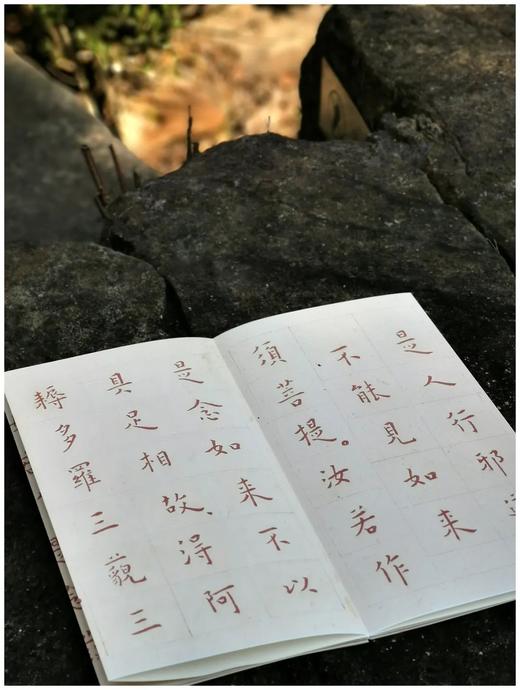 是人行邪
不能見如来
須菩提。汝若作
是念如来不以
具足相故得阿
耨多羅三藐三